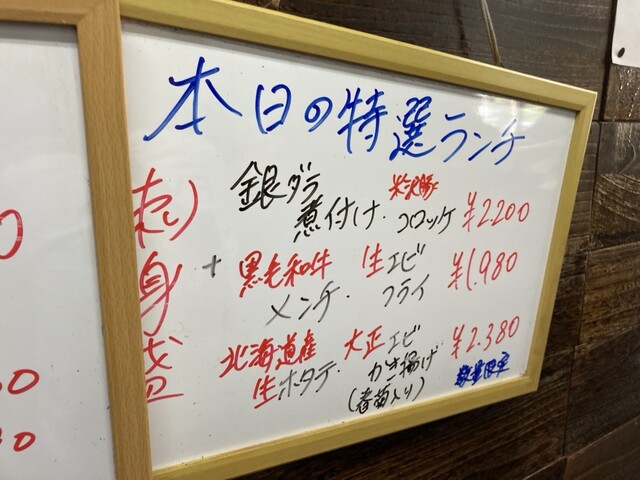 本日の特選ランチ
刺身盛
+
銀ダラ 米沢豚
煮付け・コロッケ ¥2.200
黒毛和牛 生エビ
メンチ・フライ ¥1.980
北海道産 大正エビ ¥2.380
生ホタテ・かき揚げ 数量限定
(春菊入り)